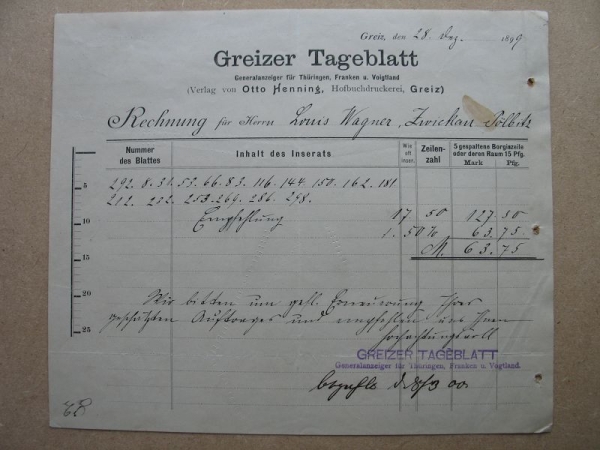 Greiz, den 28. Dez. 1899
Greizer Tageblatt
Generalanzeiger für Thüringen, Franken u. Voigtland
(Verlag von Otto Henning, Hofbuchdruckerei, Greiz)
Rechnung für Herrn Louis Wagner, Zwickau Pölbitz
Nummer des Blattes Inhalt des Inserats Wie oft inser. Zeilenzahl 5 gespaltene Borgiszeile oder deren Raum 15 Pfg.
Mark Pfg.
292. 8. 31. 55. 66. 83. 116. 144. 150. 162. 181
5
212. 232. 253. 269. 286. 298.
Empfehlung 17 50 127. 50
10
50% 63. 75.
M. 63. 75
15
20
Wir bitten um gefl. Erneuerung Ihres
geschätzten Auftrages und empfehlen uns Ihnen
25
hochachtungsvoll
GREIZER TAGEBLATT
Generalanzeiger für Thüringen, Franken u. Voigtland.
bezahlt d.